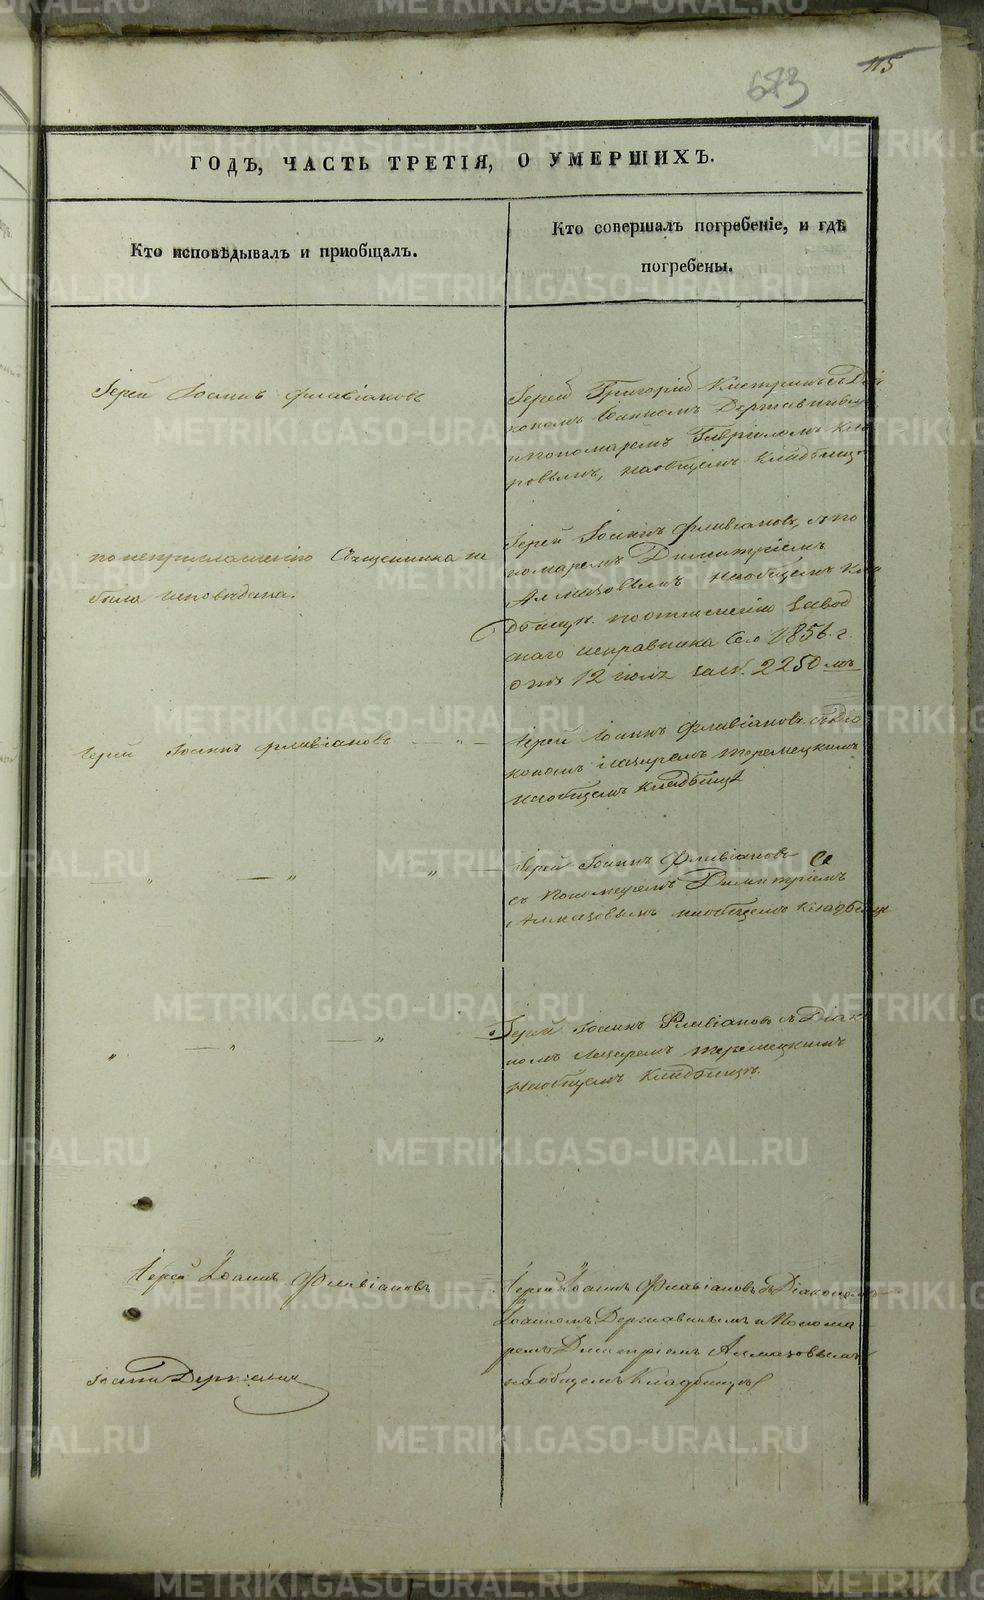 115
673
ГОДЪ, ЧАСТЬ ТРЕТІЯ, О УМЕРШИХЪ.
Кто исповѣдывалъ и приобщалъ.
Кто совершалъ погребеніе, и гдѣ
погребены.
Іерей Іоаннъ Флавіановъ
Іерей Григорій съ Діа
кономъ Іоанномъ Державинымъ
и пономаремъ Гавріиломъ
ровымъ, на общемъ кладбищѣ
по неприглашенію Священника не
была исповѣдана.
Іерей Іоаннъ Флавіановъ, съ по
номаремъ Димитріемъ
Алмазовымъ на общемъ кла
дбищѣ. по отношенію завод
скаго исправника 1856. г.
отъ 12 іюля за № 2250 мъ
Іерей Іоаннъ Флавіановъ — " —
Іерей Іоаннъ Флавіановъ съ Діа
кономъ Лазаремъ Теремецкимъ
на общемъ кладбищѣ
— " — " "
Іерей Іоаннъ Флавіановъ
съ Пономаремъ Димитріемъ
Алмазовымъ на общемъ кладбищѣ
" — " — " —
Іерей Іоаннъ Флавіановъ съ Діако
номъ Лазаремъ Теремецкимъ
на общемъ кладбищѣ.
Іерей Іоаннъ Флавіановъ
Іерей Іоаннъ Флавіановъ съ Діакономъ
Іоанномъ Державинымъ и Понома
ремъ Димитріемъ Алмазовымъ
на общемъ Кладбищѣ
Іоаннъ Державинъ
METRIKI.GASO-URAL.RU